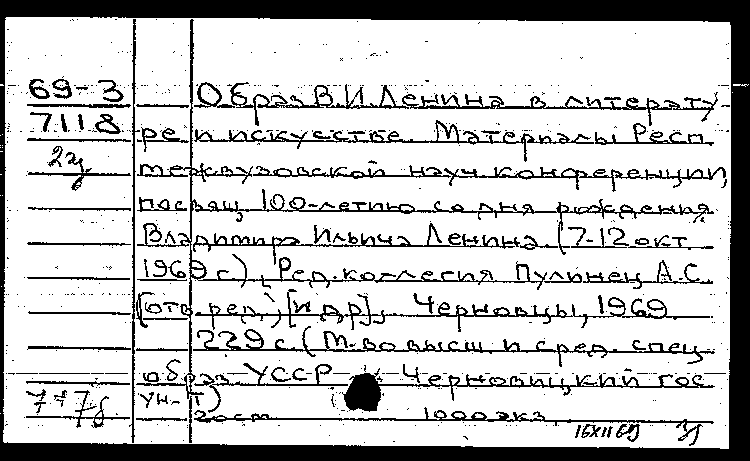 69-3 Образ В.И.Ленина в литерату
7118 ре и искусстве. Материалы Респ.
2эк межвузовской науч конференции,
посвящ. 100-летию со дня рождения
Владимира Ильича Ленина (7-12 окт.
1969 г.), Ред. коллегия Пулинец А.С.
[отв. ред.), [и др], Черновцы, 1969.
229 с. (М-во высш. и сред. спец.
образ. УССР Черновицкий гос
ун-т)
1000 экз.
16XII69